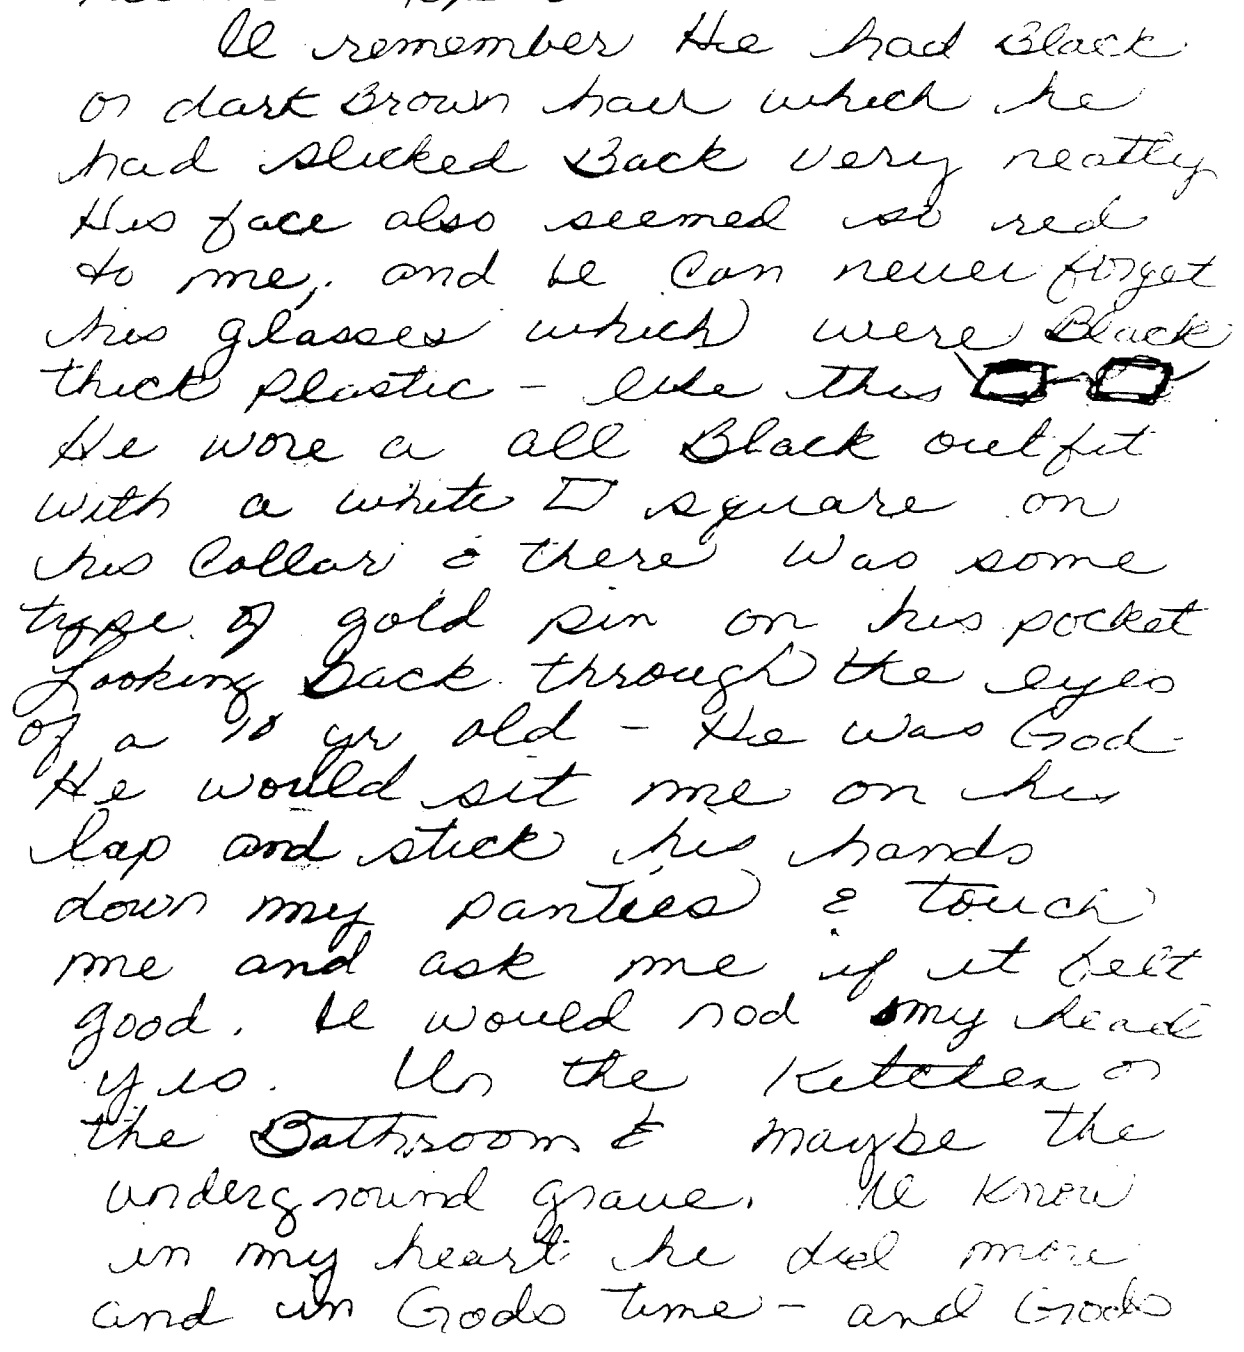 I remember He had Black
or dark Brown hair which he
had slicked Back very neatly
His face also seemed so red
to me, and I can never forget
his glasses which were Black
thick plastic - like this
He wore a all Black outfit
with a white square on
his Collar & there was some
type of gold pin on his pocket
Looking back through the eyes
of a 10 yr old - He was God
He would sit me on his
lap and stick his hands
down my panties & touch
me and ask me if it felt
good. I would nod my head
yes. In the Kitchen or
the Bathroom & maybe the
underground grave. I know
in my heart he did more
and in Gods time - and Gods